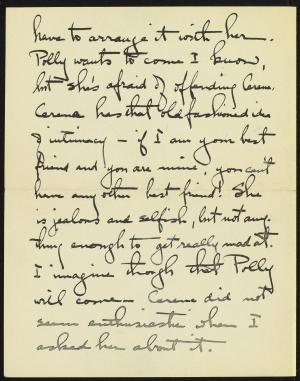 have to arrange it with her.
Polly wants to come I know,
but she's afraid of offending Cerene.
Cerena has that old fashioned idea
of intimacy – if I am your best
friend and you are mine, you can't
have any other best friend! She
is jealous and selfish, but not any-
thing enough to get really mad at.
I imagine though that Polly
will come – Cerene did not
seem enthusiastic when I
asked her about it.